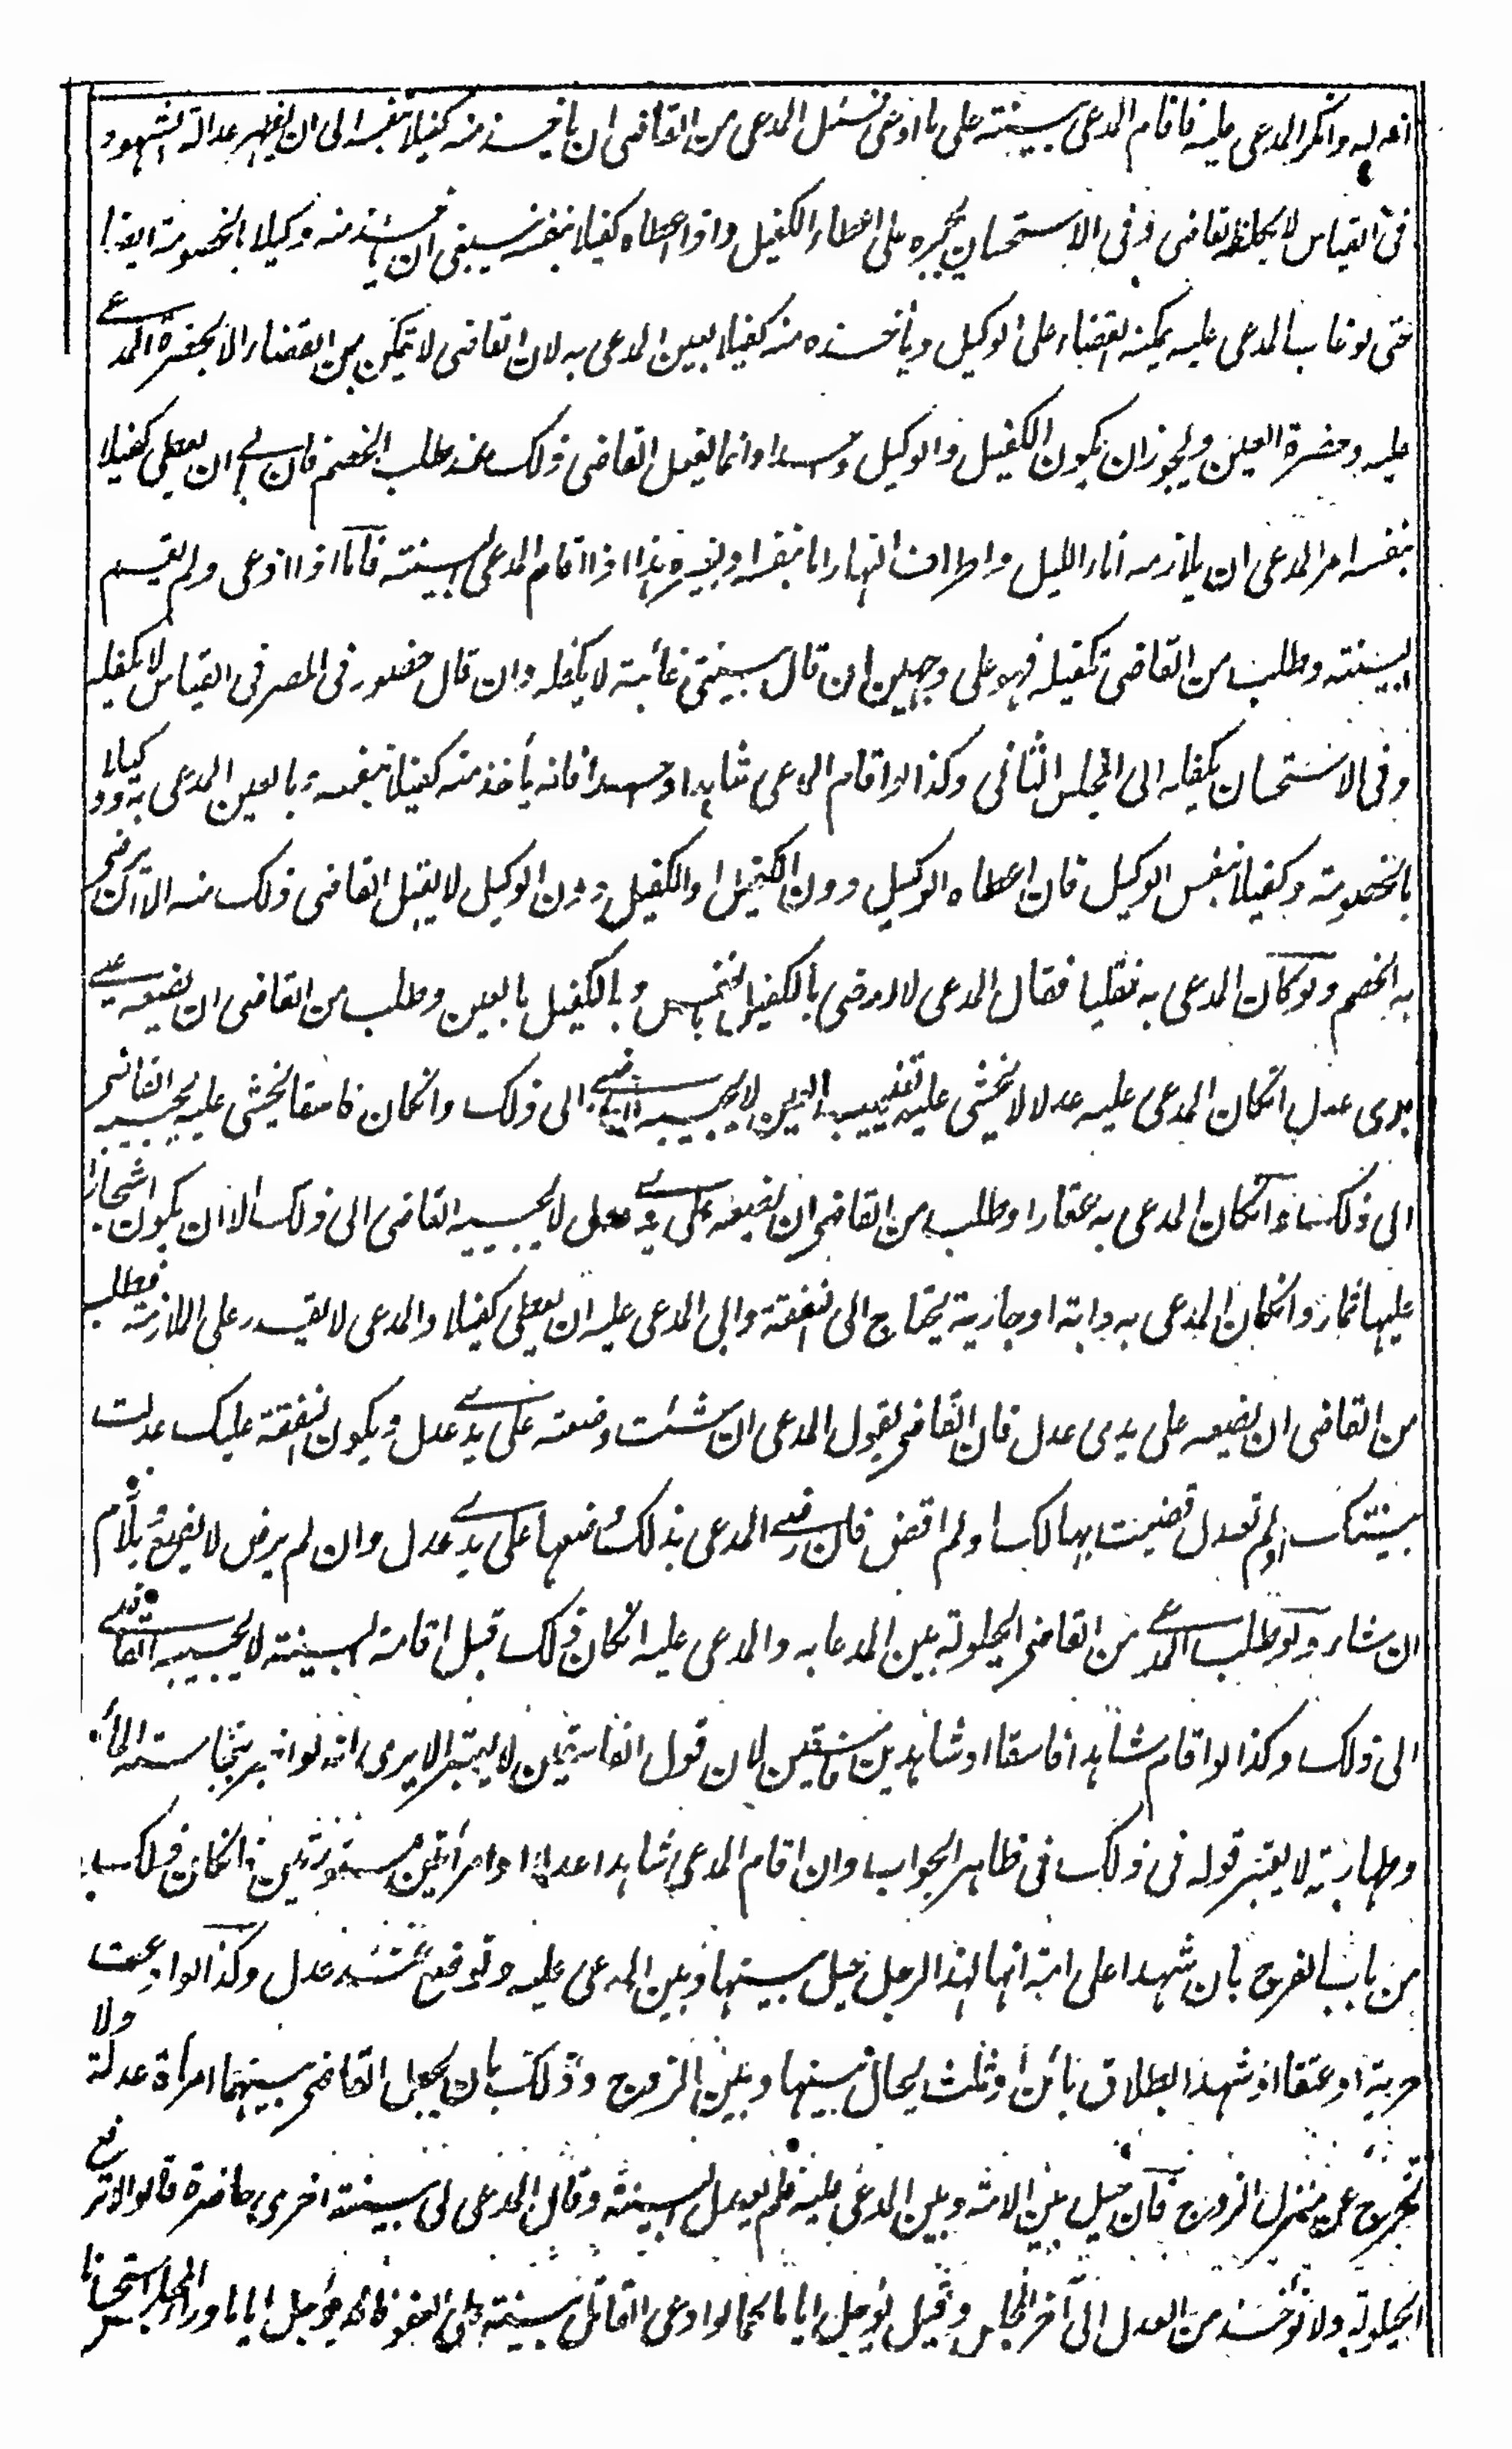 انه له وانكر المدعى عليه فاقام المدعى بينته على ما ادعى فسئل المدعى من القاضى ان ياخذ منه كفيلا بنفسه الى ان يظهر عدالة الشهود
فى القياس لا يكفله القاضى وفى الاستحسان يجبره على اعطاء الكفيل واذا اعطاه كفيلا بنفسه ينبغى ان ياخذ منه وكيلا بالخصومة ايضا
حتى لو غاب المدعى عليه يمكنه القضاء على الوكيل ويأخذه منه كفيلا بعين المدعى به لان القاضى لا يتمكن من القضاء الا بحضرة المدعى
عليه وحضرة العين ويجوز ان يكون الكفيل والوكيل واحدا وانما يفعل القاضى ذلك عند طلب الخصم فان ابى ان يعطى كفيلا
بنفسه امر المدعى ان يلازمه اناء الليل واطراف النهار اما بنفسه او بغيره هذا اذا اقام المدعى البينة فاما اذا ادعى ولم يقم
البينة وطلب من القاضى تكفيله فهو على وجهين ان قال بينتى غائبة لا يكفله وان قال حضور فى المصر فى القياس لا يكفله
وفى الاستحسان يكفله الى المجلس الثانى وكذا لو اقام المدعى شاهدا واحدا فانه يأخذ منه كفيلا بنفسه وبالعين المدعى به ووكيلا
بالخصومة وكفيلا بنفس الوكيل فان اعطاه الوكيل دون الكفيل او الكفيل دون الوكيل لا يقبل القاضى ذلك منه الا ان يرضى
به الخصم ولو كان المدعى به نقليا فقال المدعى لا ارضى بالكفيل بالنفس وبالكفيل بالعين وطلب من القاضى ان يضعه على
يدى عدل انكان المدعى عليه عدلا لا يخشى عليه تغييب العين لا يجيبه القاضى الى ذلك وانكان فاسقا يخشى عليه يجيبه القاضى
الى ذلك وانكان المدعى به عقارا وطلب من القاضى ان يضعه على يدى عدل لا يجيبه القاضى الى ذلك الا ان يكون اشجارا
عليها ثمار وانكان المدعى به دابة او جارية يحتاج الى النفقة وابى المدعى عليه ان يعطى كفيلا والمدعى لا يقدر على الملازمة فطلب
من القاضى ان يضعه على يدى عدل فان القاضى يقول المدعى ان شئت وضعته على يدى عدل ويكون النفقة عليك عدلت
بينتك او لم تعدل قضيت بها لك او لم اقض فان رضى المدعى بذلك وضعها على يدى عدل وان لم يرض لا يضع بلازم
ان شاء ولو طلب المدعى من القاضى الحيلولة بين المدعا به والمدعى عليه انكان ذلك قبل اقامة البينة لا يجيبه القاضى
الى ذلك وكذا لو اقام شاهدا فاسقا او شاهدين فاسقين لان قول الفاسقين لا يعتبر الا يرى انه لو اخبر بنجاسة الماء
وطهارته لا يعتبر قوله فى ذلك فى ظاهر الجواب وان اقام المدعى شاهدا عدلا او امرأتين مستورتين فانكان ذلك
من باب الفرج بان شهدا على امة انها لهذا الرجل حيل بينها وبين المدعى عليه وتوضع عند عدل وكذا لو ادعت
حرية او عتقا او شهدا بطلاق بائن او ثلث يحال بينها وبين الزوج وذلك بان يجعل القاضى بينهما امرأة عدلة ولا
تخرج عن منزل الزوج فان حيل بين الامة وبين المدعى عليه فلم يعدل البينة وقال المدعى لى بينة اخرى حاضرة قالوا لا ترفع
الحيلولة ولا تؤخذ من العدل الى آخر المجلس وقيل يؤجل اياما كما لو ادعى القاتل بينة على العفو فانه يؤجل اياما وراء المجلس استحسانا